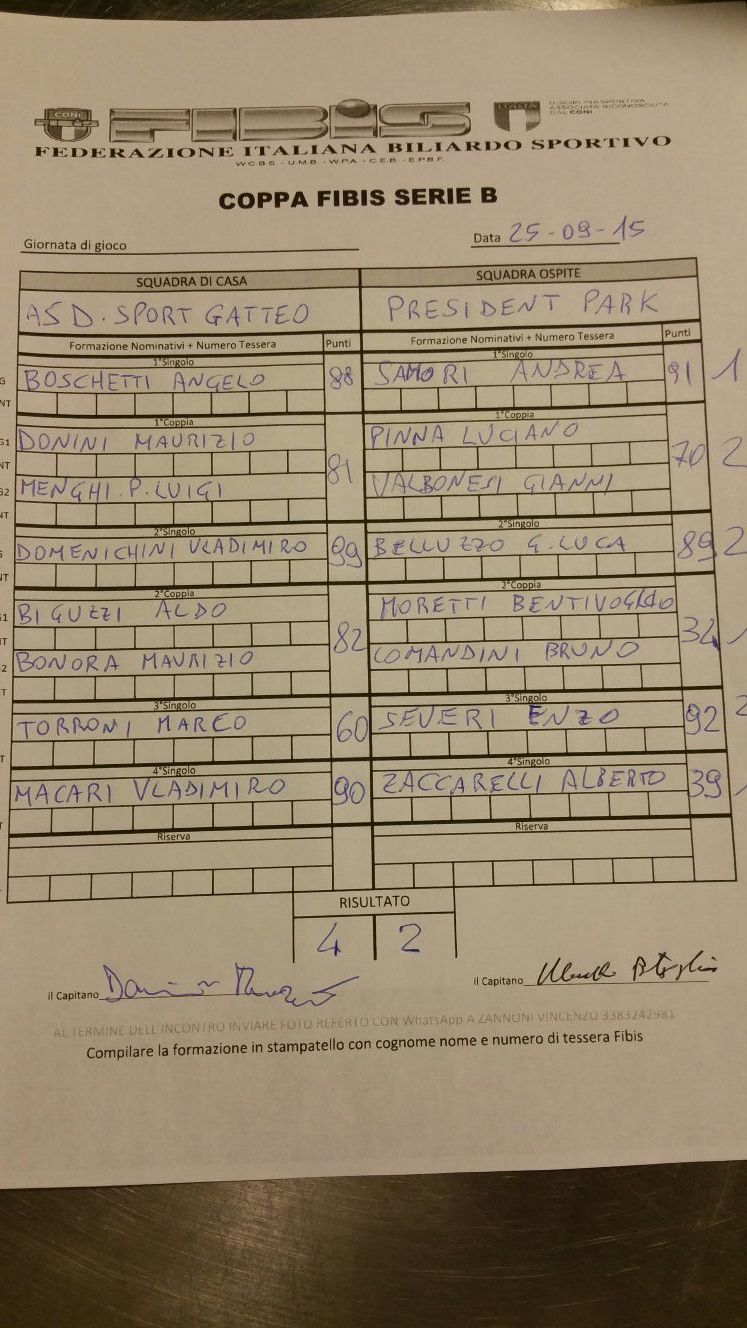 CONI FIBIS ITALIA DISCIPLINA SPORTIVA
ASSOCIATA RICONOSCIUTA
DAL CONI
FEDERAZIONE ITALIANA BILIARDO SPORTIVO
W.C.B.S. - U.M.B. - W.P.A. - C.E.B. - E.P.B.F.
COPPA FIBIS SERIE B
Giornata di gioco Data 25-09-15
SQUADRA DI CASA SQUADRA OSPITE
ASD. SPORT GATTEO PRESIDENT PARK
Formazione Nominativi + Numero Tessera Punti Formazione Nominativi + Numero Tessera Punti
1°Singolo 1°Singolo
BOSCHETTI ANGELO 88 SAMORI ANDREA 91 1
NT
1°Coppia 1°Coppia
G1 DONINI MAURIZIO 81 PINNA LUCIANO 70 2
NT
G2 MENGHI.P.LUIGI VALBONESI GIANNI
NT
2°Singolo 2°Singolo
DOMENICHINI VLADIMIRO 99 BELLUZZO G.LUCA 89 2
NT
2°Coppia 2°Coppia
BIGUZZI ALDO 82 MORETTI BENTIVOGLIO 34 1
BONORA MAURIZIO COMANDINI BRUNO
3°Singolo 3°Singolo
TORRONI MARCO 60 SEVERI ENZO 92 2
4°Singolo 4°Singolo
MACARI VLADIMIRO 90 ZACCARELLI ALBERTO 39 1
Riserva Riserva
RISULTATO
4 2
il Capitano il Capitano
AL TERMINE DELL'INCONTRO INVIARE FOTO REFERTO CON WhatsApp A ZANNONI VINCENZO 3383242981
Compilare la formazione in stampatello con cognome nome e numero di tessera Fibis